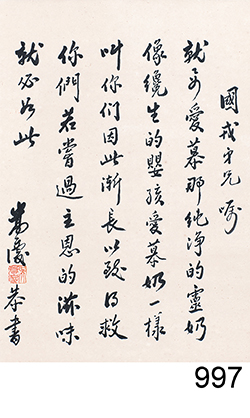 國戎才兄囑
就要愛慕那純淨的靈奶
像纔生的嬰孩愛慕奶一樣
叫你们因此漸長以致得救
你們若嘗過主恩的滋味
就必如此
恭書
997